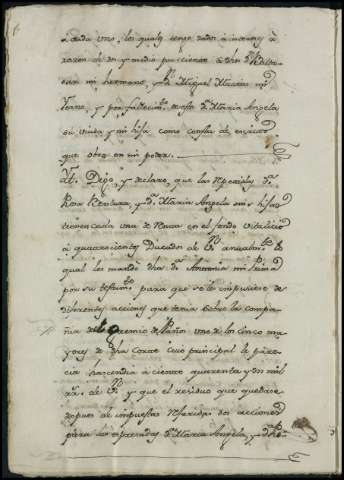 à cada uno, los quales tengo dados a interes á
razon de dos y medio por ciento a dho Dn
mi hermano, y Dn Miguel Macias mi
Yerno, y por fallecimto de esta Da Maria Angela
su viuda y mi hija como consta de escrito
que obra en mi poder.
Yt. Dejo, y declaro, que las Da
Rosa Ventura, y Da Maria Angela mis hijas
tienen cada una de Renta en el fondo vitalicio
á quatrocientos Ducados de Vn anuales lo
qual les mandó dha Da Antonia mi Prima
por su testamto para que se le impusiese de
diferentes acciones que tenia sobre la compa-
ñia del Gremio de Paños uno de los cinco ma-
yores de dha Corte cuio principal le pare-
cia hascendia á ciento quarenta y dos mil
rrs. de Vn y que el residuo que quedase
despues de impuestas referidas dos acciones
para las expresadas Da Maria Angela, y Da